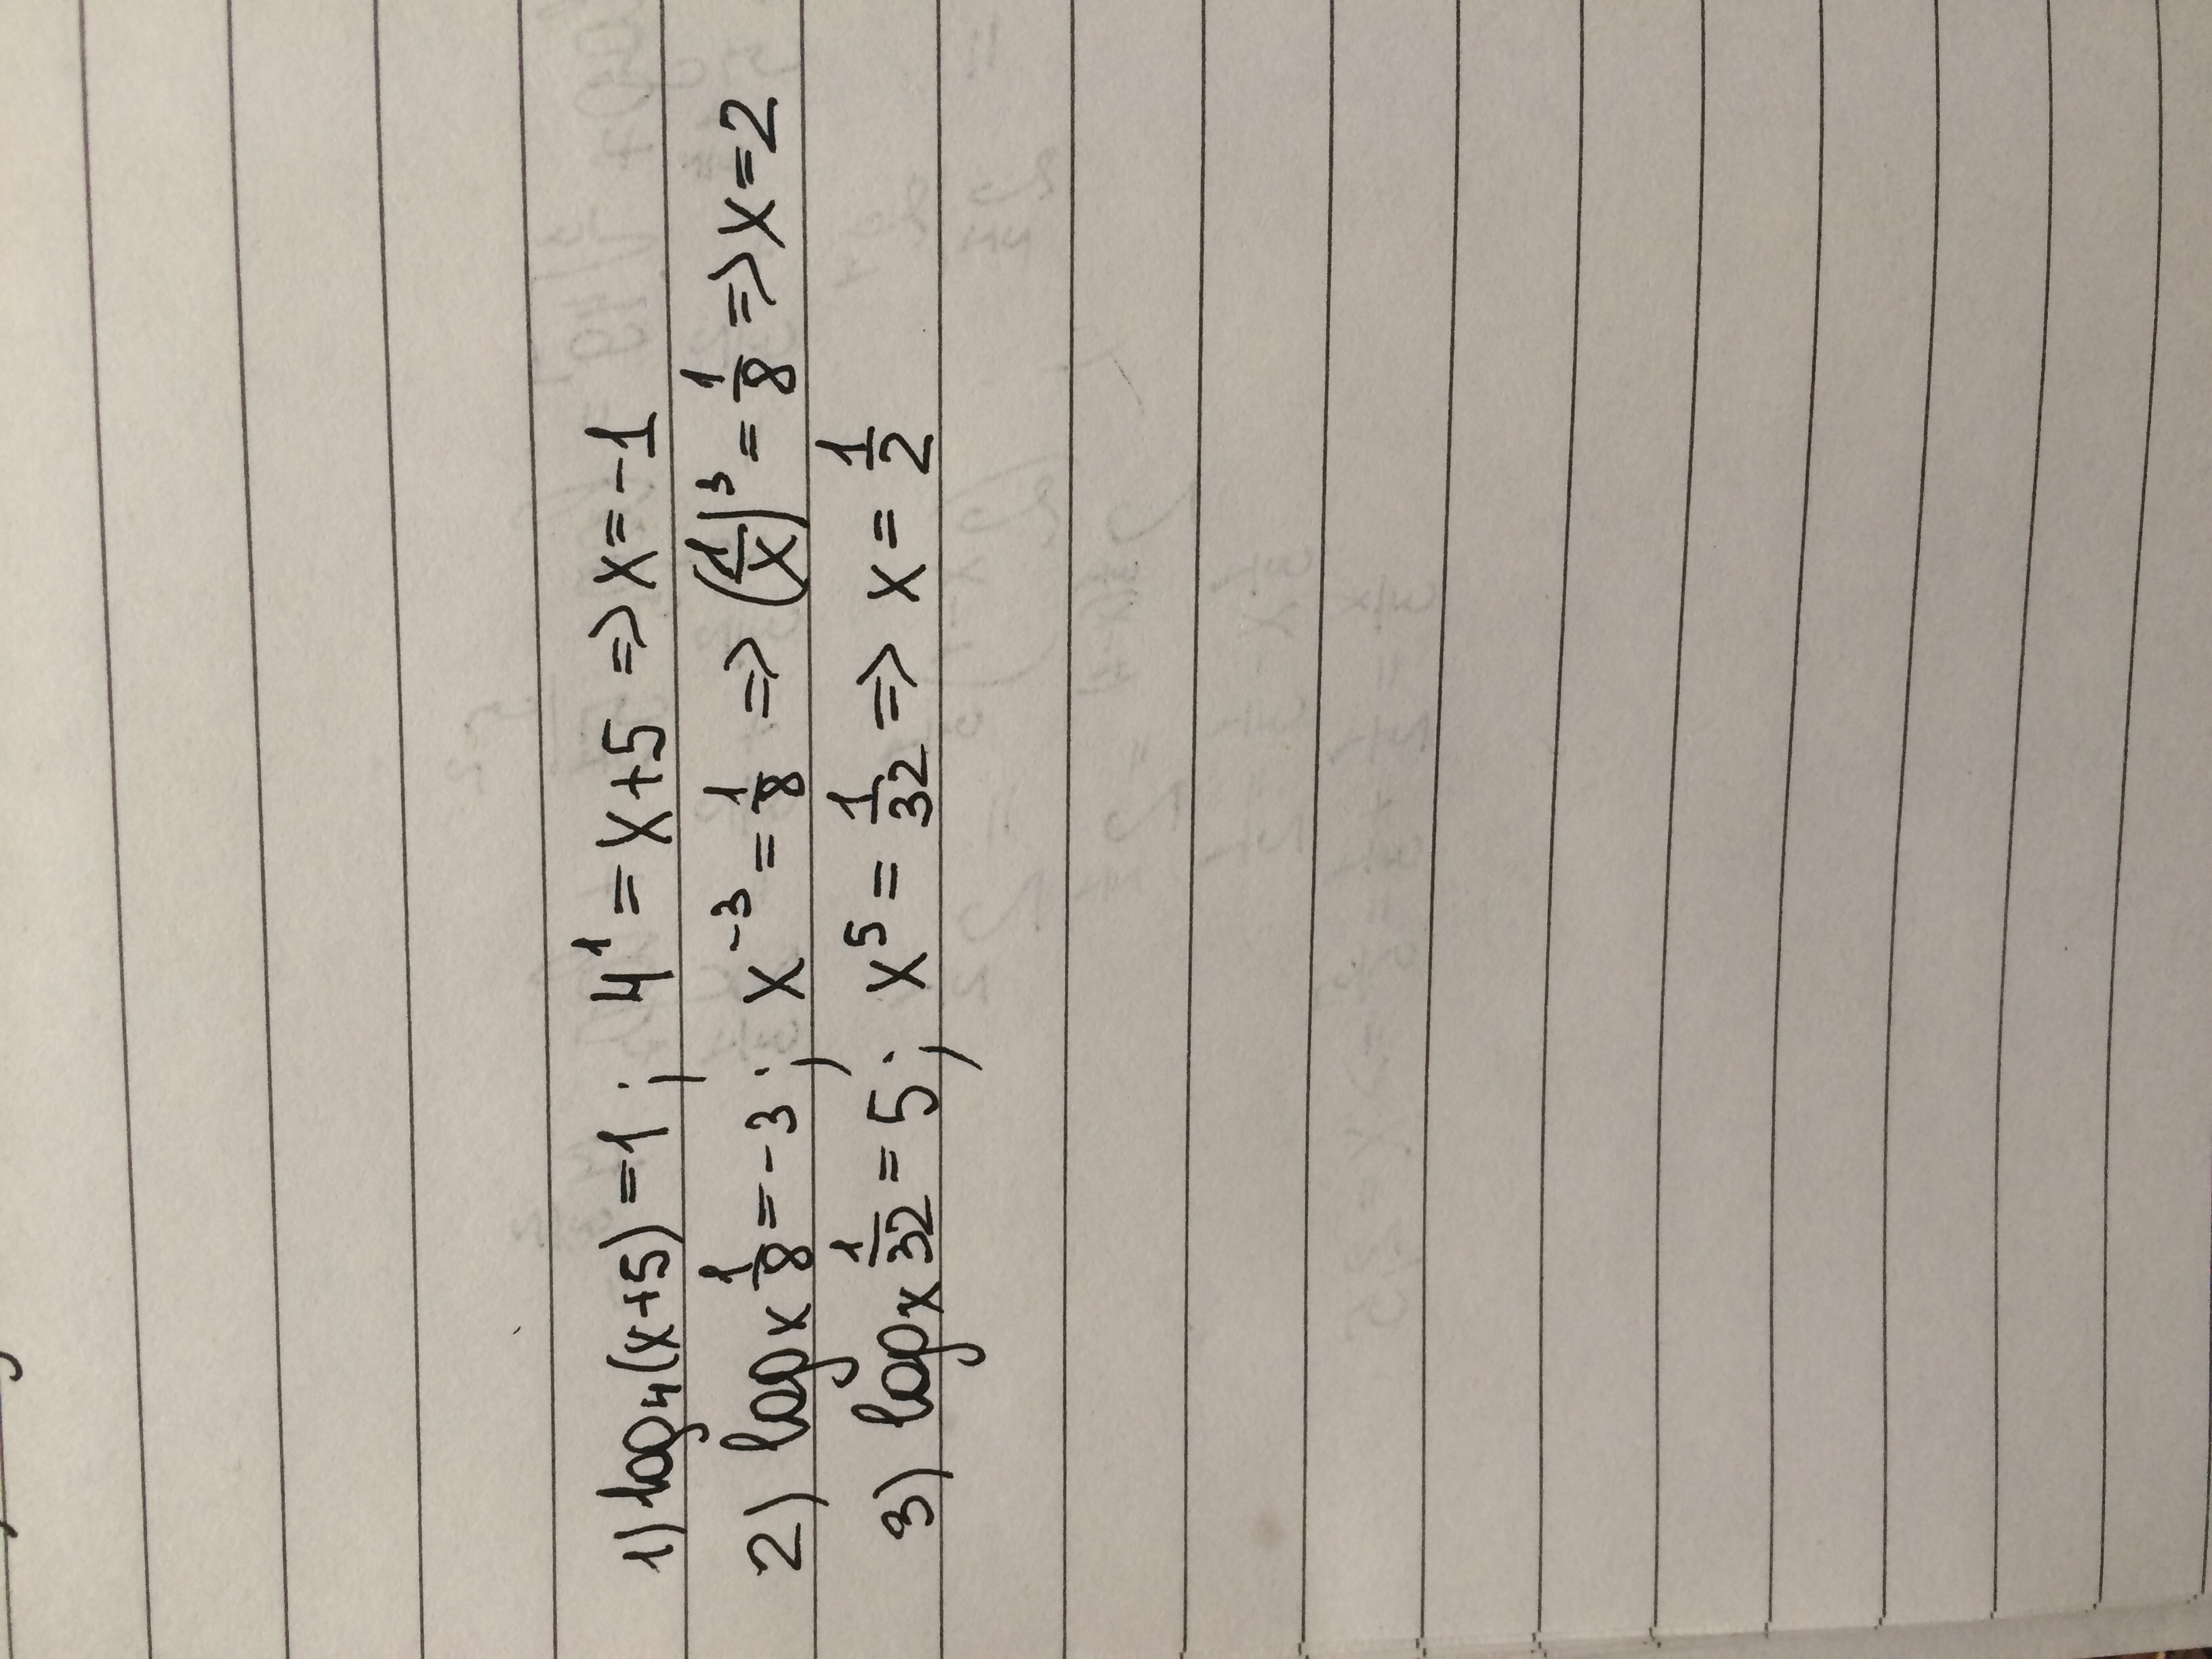 1) log₄(x+5)=1; 4¹=x+5 => x=-1
2) logₓ 1/8=-3; x⁻³=1/8 => (1/x)³=1/8 => x=2
3) logₓ 1/32=5; x⁵=1/32 => x=1/2